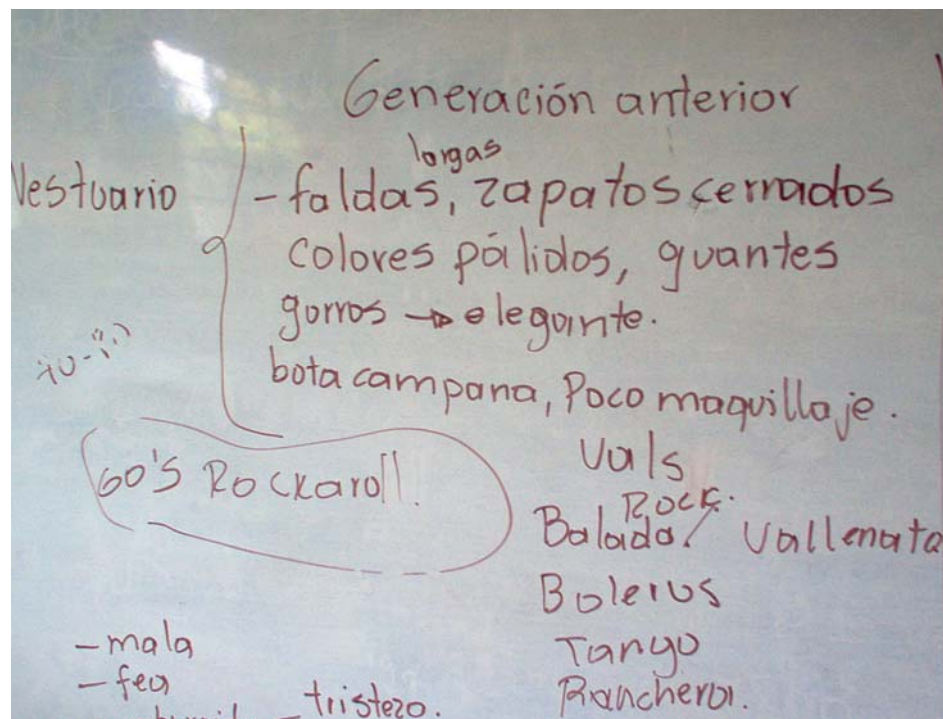 Generación anterior
largas
Vestuario - faldas, zapatos cerrados
colores pálidos, guantes
gorros → elegante.
bota campana, Poco maquillaje.
60's Rockaroll.
Vals
Rock.
Balada / Vallenata
Boleros
Tango
Ranchera.
- mala
- fea
tristezo.